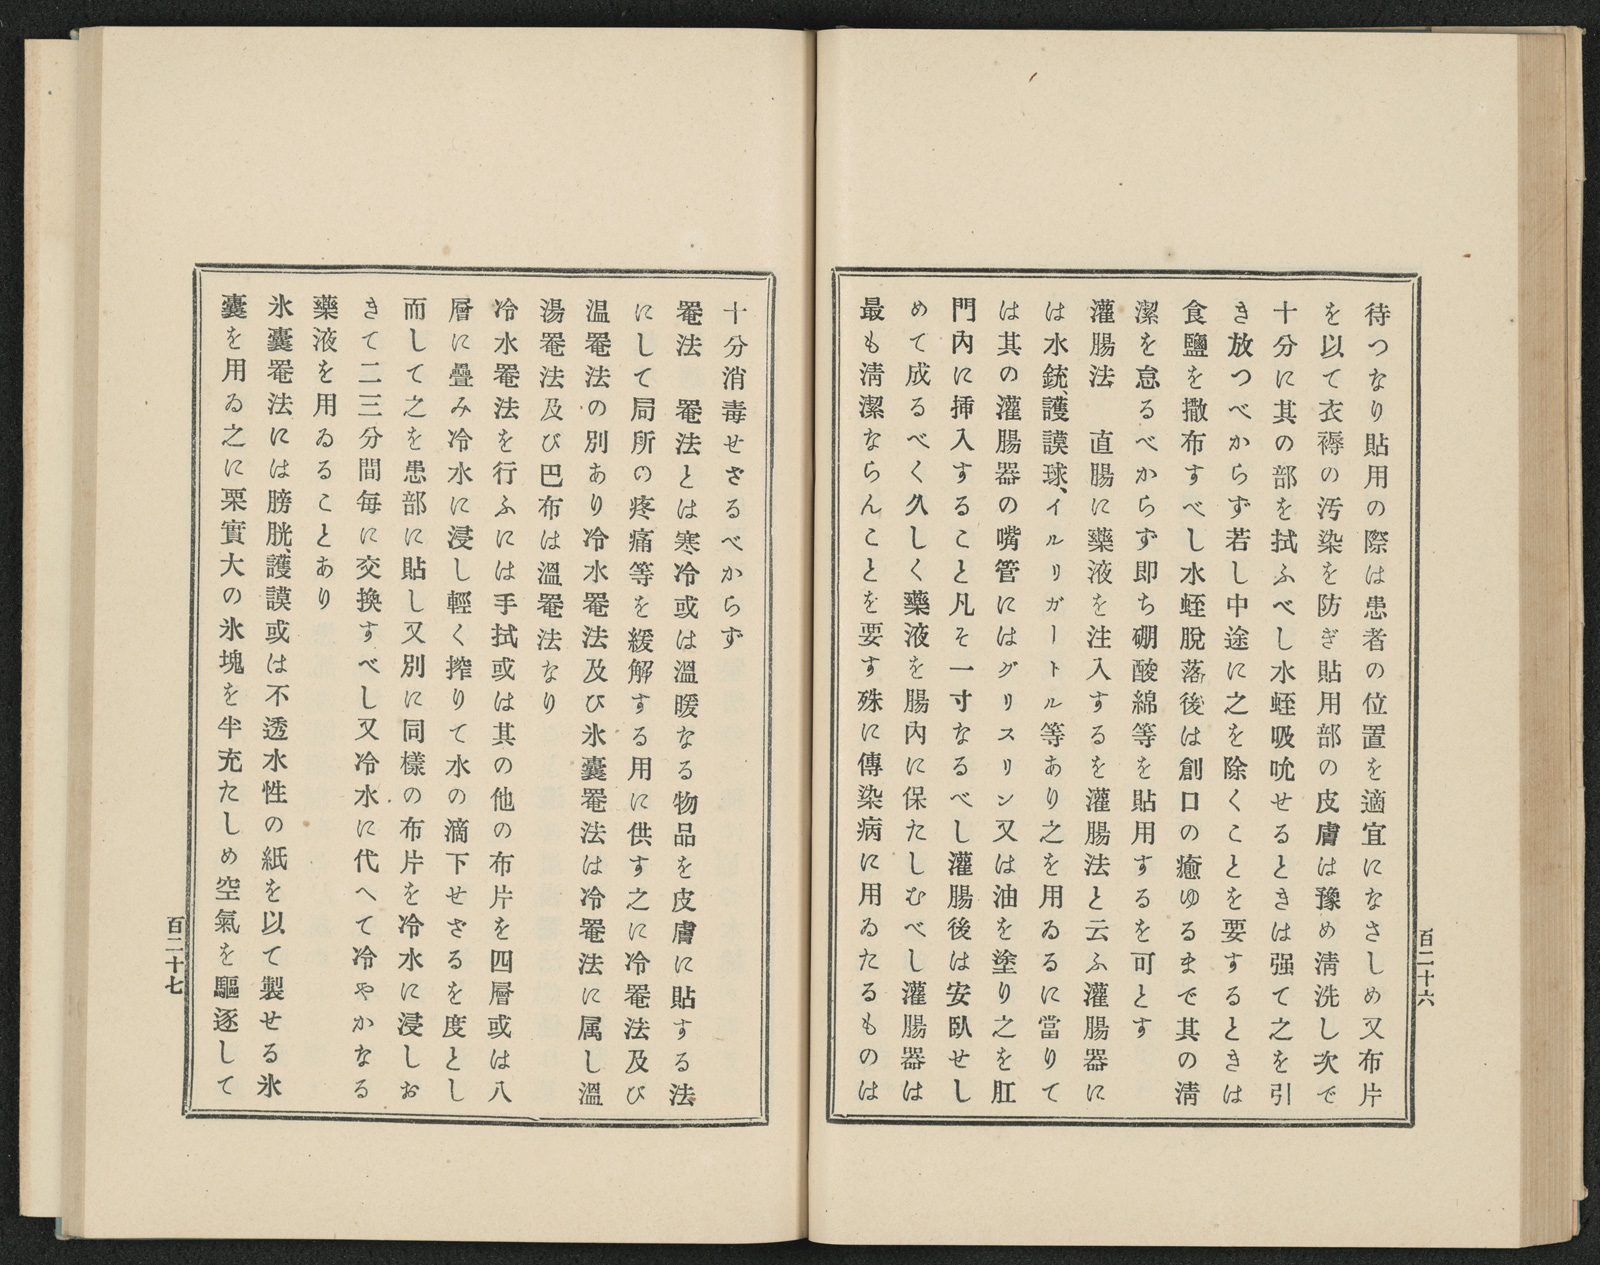 待つなり貼用の際は患者の位置を適宜になさしめ又布片
を以て衣褥の汚染を防ぎ貼用部の皮膚は豫め淸洗し次で
十分に其の部を拭ふべし水蛭吸吮せるときは强て之を引
き放つべからず若し中途に之を除くことを要するときは
食鹽を撒布すべし水蛭脫落後は創口の癒ゆるまで其の淸
潔を怠るべからず即ち硼酸綿等を貼用するを可とす
灌腸法　直腸に藥液を注入するを灌腸法と云ふ灌腸器に
は水銃、護謨球、イルリガートル等あり之を用ゐるに當りて
は其の灌腸器の嘴管にはグリスリン又は油を塗り之を肛
門內に揷入すること凡そ一寸なるべし灌腸後は安臥せし
めて成るべく久しく藥液を腸內に保たしむべし灌腸器は
最も淸潔ならんことを要す殊に傳染病に用ゐたるものは
百二十六
十分消毒せざるべからず
罨法　罨法とは寒冷或は溫暖なる物品を皮膚に貼する法
にして局所の疼痛等を緩解する用に供す之に冷罨法及び
溫罨法の別あり冷水罨法及び氷囊罨法は冷罨法に属し溫
湯罨法及び巴布は溫罨法なり
冷水罨法を行ふには手拭或は其の他の布片を四層或は八
層に疊み冷水に浸し輕く搾りて水の滴下せざるを度とし
而して之を患部に貼し又別に同樣の布片を冷水に浸しお
きて二三分間每に交換すべし又冷水に代へて冷やかなる
藥液を用ゐることあり
氷囊罨法には膀胱、護謨或は不透水性の紙を以て製せる氷
囊を用ゐ之に栗實大の氷塊を半充たしめ空氣を驅逐して
百二十七